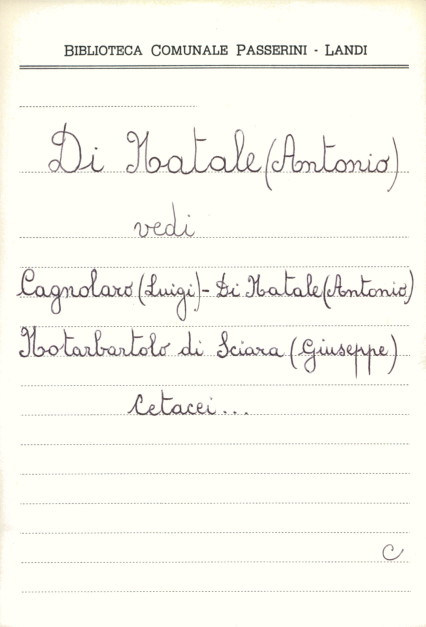 BIBLIOTECA COMUNALE PASSERINI - LANDI
Di Natale (Antonio)
vedi
Cagnolaro (Luigi) - Di Natale (Antonio)
Notarbartolo di Sciara (Giuseppe)
Cetacei...
C